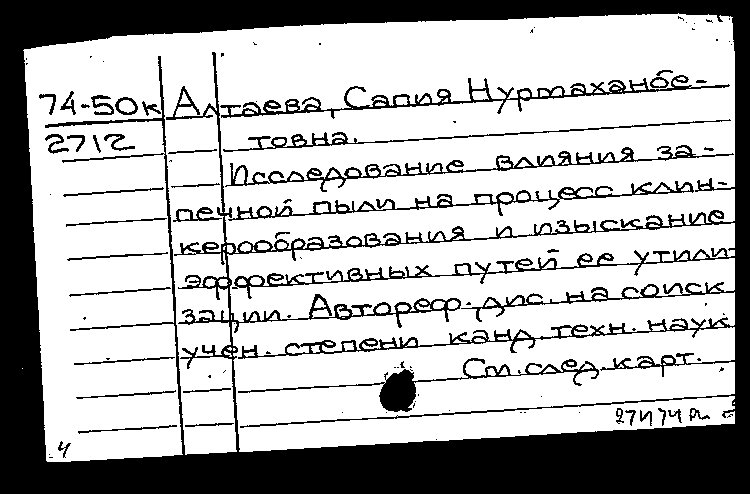 74-50к Алтаева, Сапия Нурмаханбе-
2712 товна.
Исследование влияния за-
печной пыли на процесс клин-
керообразования и изыскание
эффективных путей ее утили-
зации. Автореф. дис. на соиск
учен. степени канд. техн. наук
См. след. карт.
4